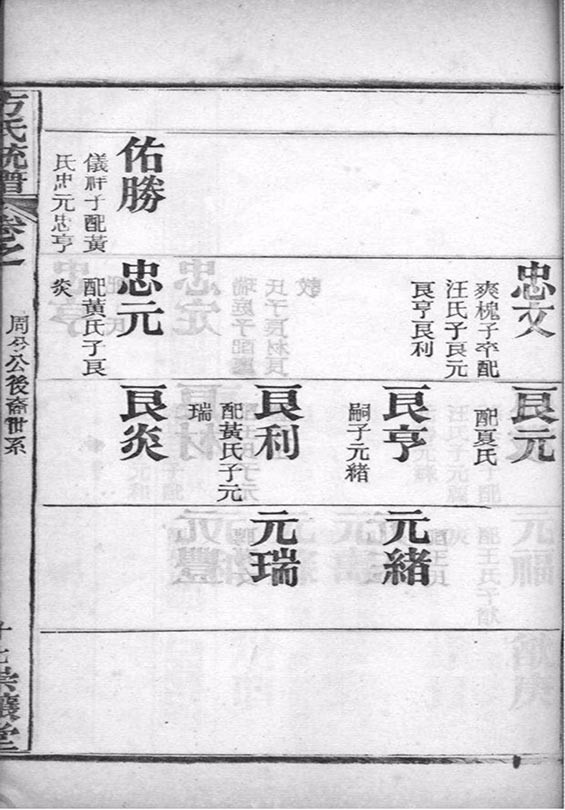 佑勝
儀祥子配黃
氏忠元忠亨
忠文
爽槐子卒配
汪氏子良元
良亨良利
忠元
配黃氏子良
炎
良元
配夏氏
良亨
嗣子元緒
良利
配黃氏子元
瑞
良炎
元緒
元瑞
方氏統譜
卷之一
公後裔世系